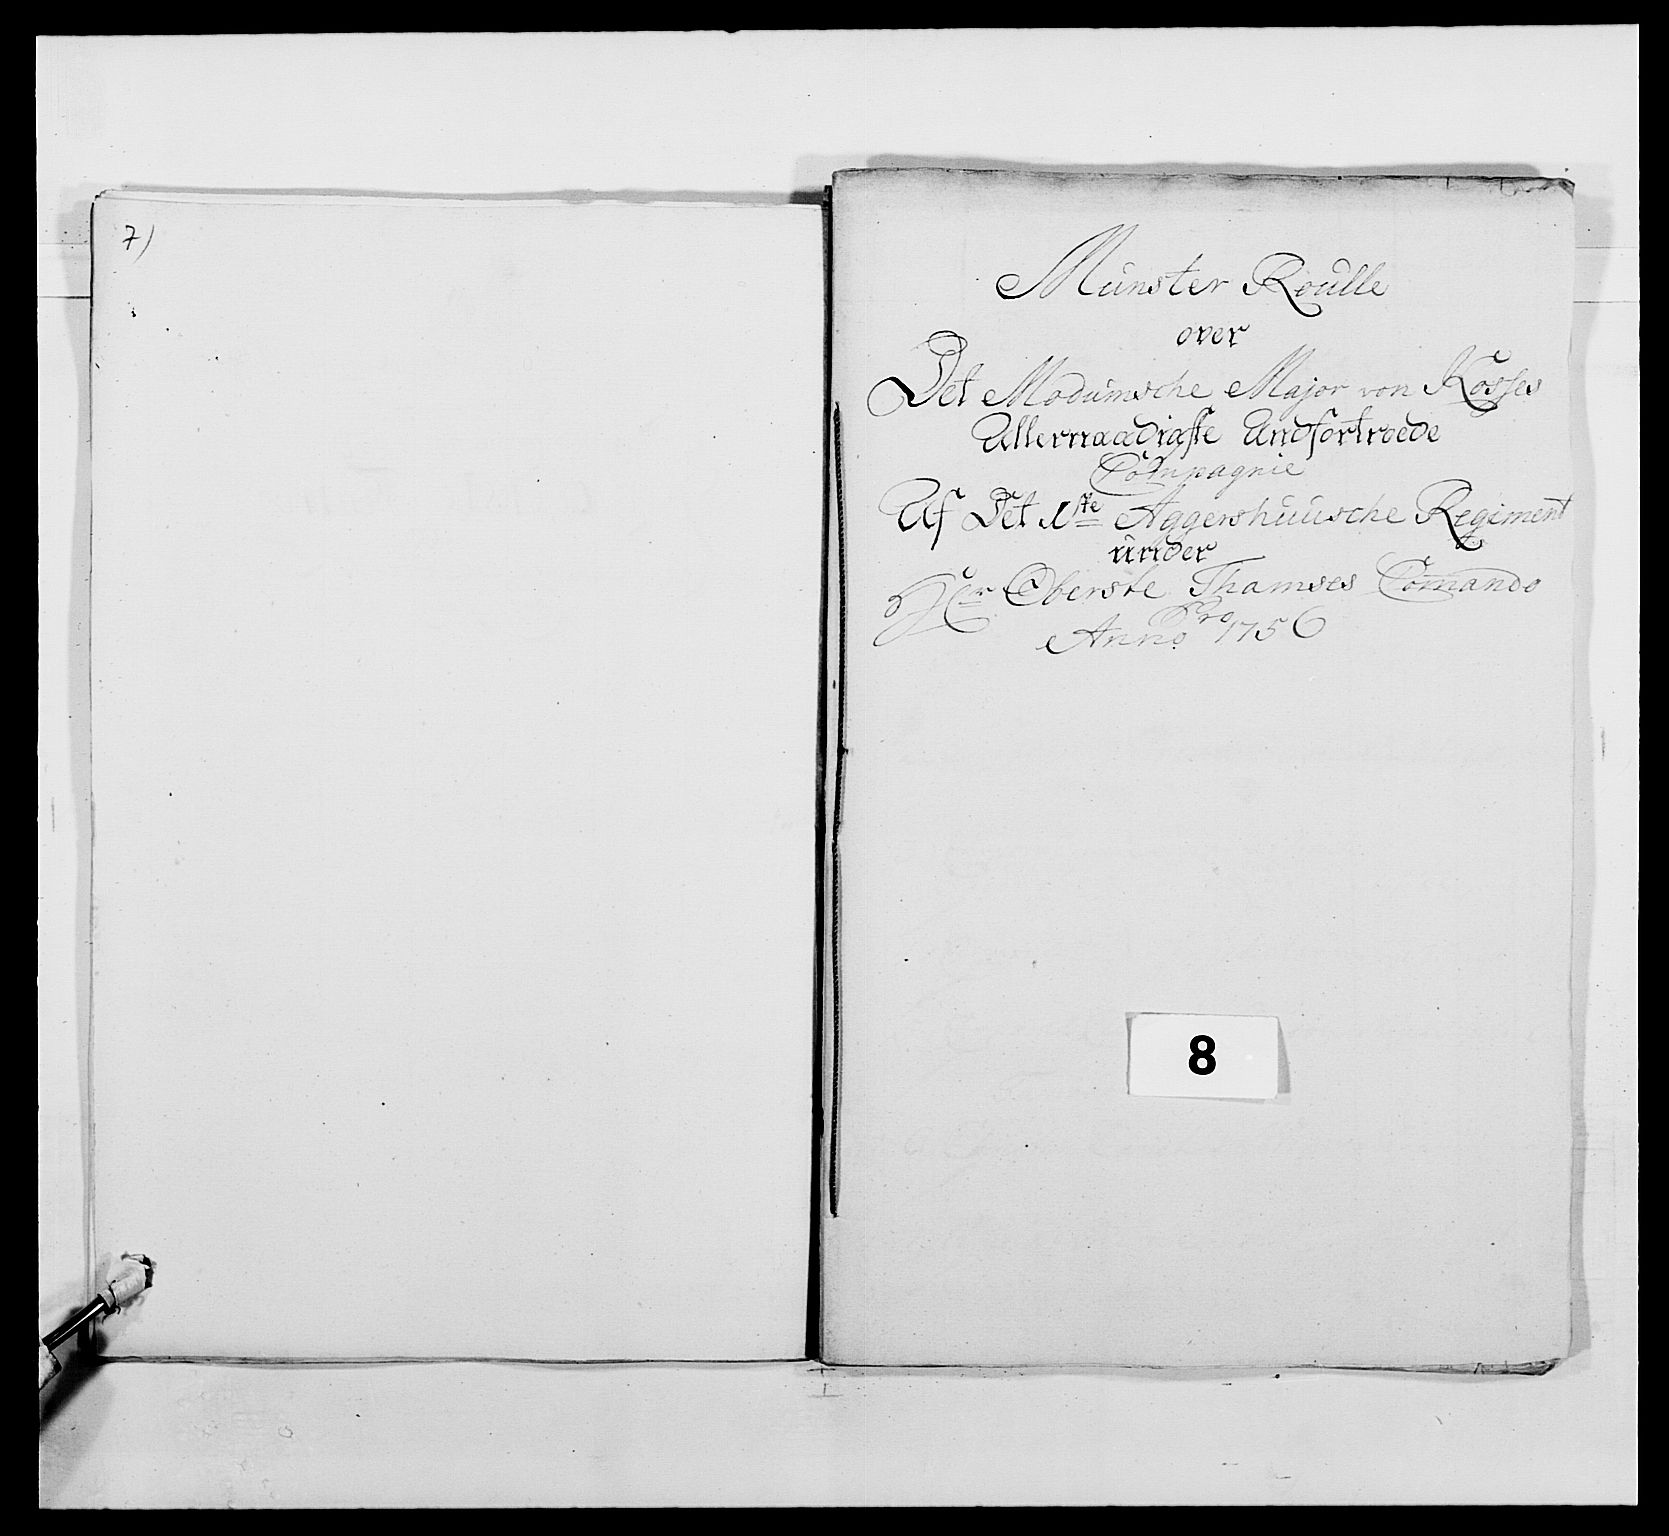 7)
Münster Roülle
over
Det Modumsche Major von Kosses
Allernaadigste Andfortroede
Compagnie
Af Det 1ste Aggershuusche Regiment
ünder
Hr Oberste Thamses Comando
Pro
Anno 1756
8